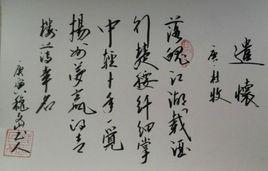 遣懷
唐·杜牧
落魄江湖載酒
行楚腰纤細掌
中輕十年一覺
揚州夢贏得青
樓薄幸名
庚寅